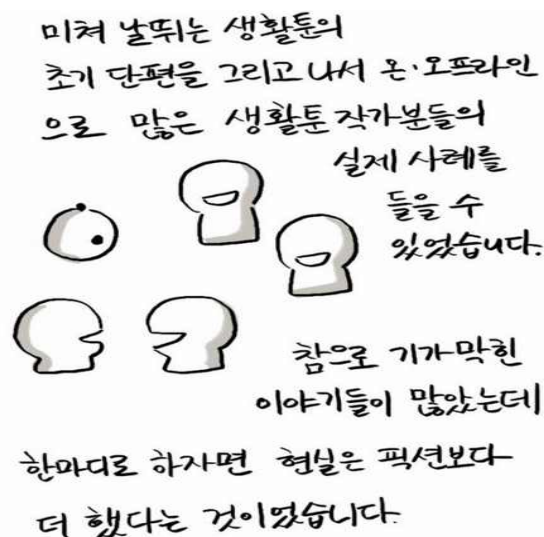 미쳐 날뛰는 생활툰의
초기 단편을 그리고 나서 온·오프라인
으로 많은 생활툰 작가분들의
실제 사례를
들을 수
있었습니다.
참으로 기가 막힌
이야기들이 많았는데
한마디로 하자면 현실은 픽션보다
더 했다는 것이었습니다.